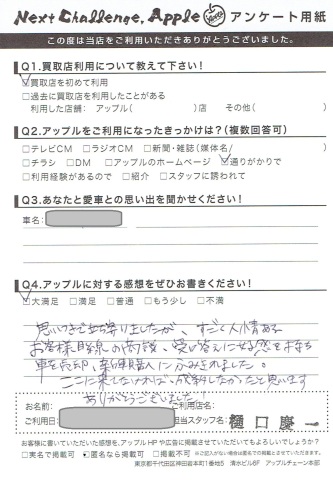 Next Challenge, Apple アンケート用紙
この度は当店をご利用いただきありがとうございました。
Q1.買取店利用について教えて下さい!
☑買取店を初めて利用
□過去に買取店を利用したことがある
利用した店舗: アップル( )店 その他( )
Q2.アップルをご利用になったきっかけは?(複数回答可)
□テレビCM □ラジオCM □新聞・雑誌(媒体名/ )
□チラシ □DM □アップルのホームページ ☑通りがかりで
□利用経験があるので □紹介 □スタッフに誘われて
Q3.あなたと愛車との思い出を聞かせください!
車名:
Q4.アップルに対する感想をぜひお書きください!
☑大満足 □満足 □普通 □もう少し □不満
思いつきで立ち寄りましたが、すごく人情ある
お客様目線の商談、受け答えに好感を持ち
車を売却、新車購入に進みきれました。
ここに来なければ、成約しなかったと思います
ありがとうございました!
お名前: ご利用店名:
ご利用日: 担当スタッフ名: 樋口慶一
お客様に書いていただいた感想を、アップルHPや広告に掲載させていただいてもよろしいでしょうか?
□実名で掲載可 ☑匿名なら掲載可 □掲載不可 ※ご記入がない場合は匿名での掲載とさせていただきます。
東京都千代田区神田岩本町1番地5 清水ビル6F アップルチェーン本部